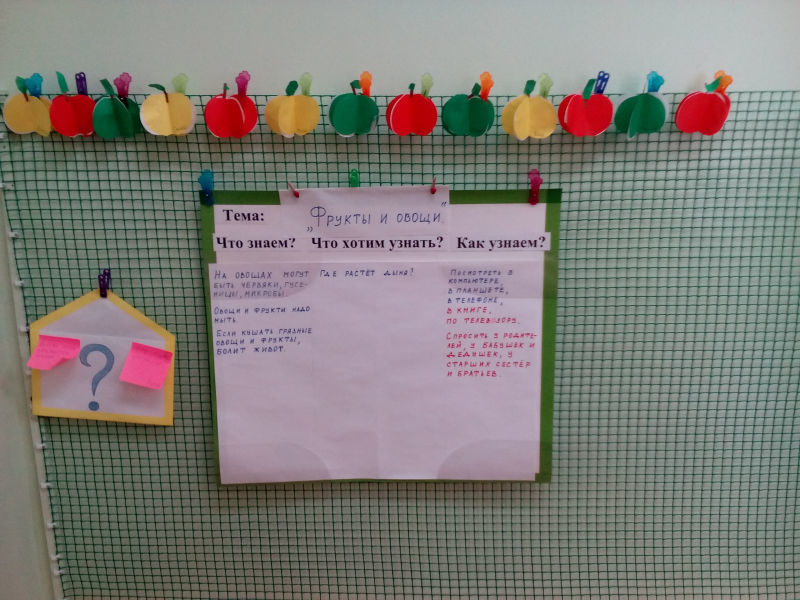 Тема:
„Фрукты и овощи"
Что знаем? Что хотим узнать? Как узнаем?
На овощах могут
быть червяки, гусе-
ницы, микробы.
Овощи и фрукти надо
мыть.
Если кушать грязные
овощи и фрукты,
болит живот.
Где растёт дыня?
Посмотреть в
компьютере
в планшете,
в телефоне,
в книге,
по телевизору.
Спросить у родите-
лей, у бабушек и
дедушек, у
старших сестёр
и братьев.
?